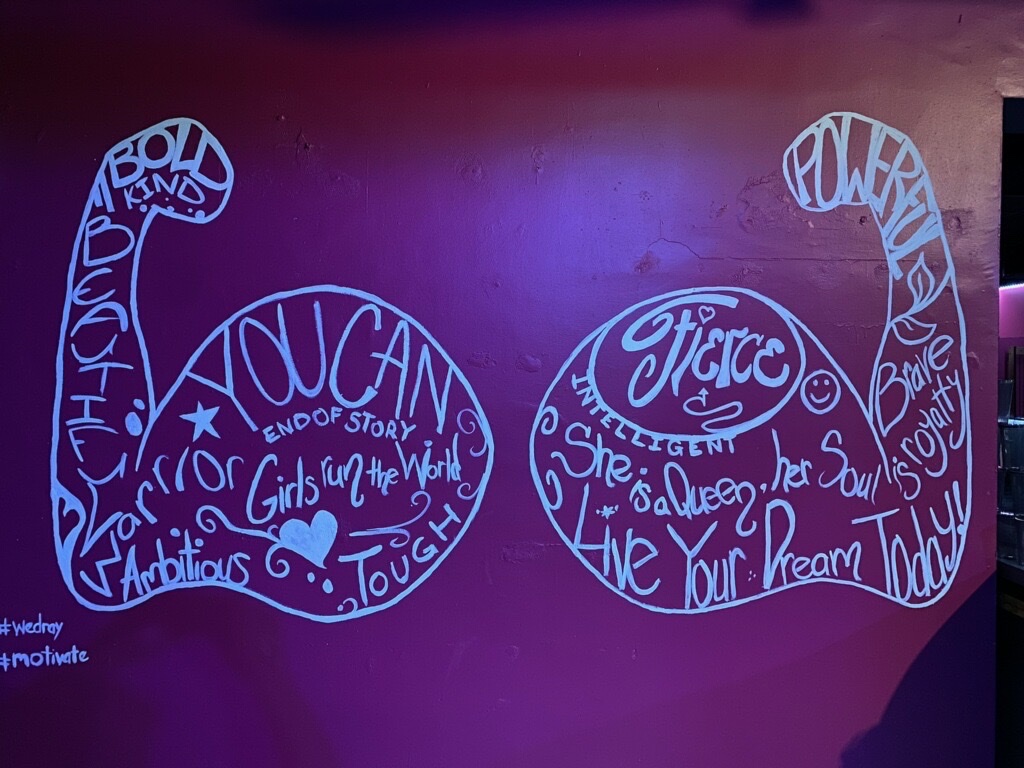 BOLD
KIND
BEAUTIFUL
YOU CAN
END OF STORY
Warrior
Girls run the World
Ambitious
TOUGH
#wedray
#motivate
POWERFUL
Fierce
INTELLIGENT
Brave
She is a Queen, her Soul is royalty
Live Your Dream Today!